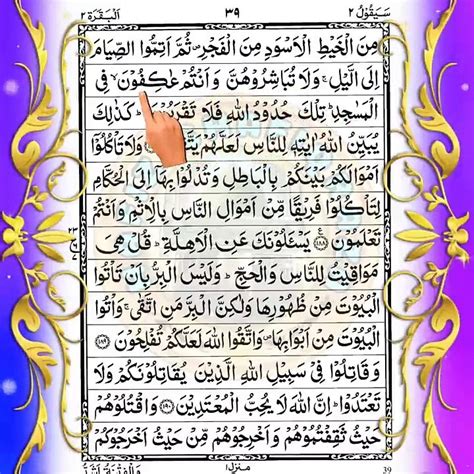 سَيَقُوْلُ ٢
٣٩
اَلْبَقَرَة ٢
مِنَ الْخَيْطِ الْاَسْوَدِ مِنَ الْفَجْرِ ۪ ثُمَّ اَتِمُّوا الصِّيَامَ
اِلَى الَّيْلِ ۚ وَلَا تُبَاشِرُوْهُنَّ وَاَنْتُمْ عٰكِفُوْنَ ۙ فِي
الْمَسٰجِدِ ؕ تِلْكَ حُدُوْدُ اللّٰهِ فَلَا كَذٰلِكَ
يُبَيِّنُ اللّٰهُ اٰيٰتِهٖ لِلنَّاسِ لَعَلَّهُمْ وَلَا تَاْكُلُوْٓا
اَمْوَالَكُمْ بَيْنَكُمْ بِالْبَاطِلِ وَتُدْلُوْا بِهَآ اِلَى الْحُكَّامِ
لِتَاْكُلُوْا فَرِيْقًا مِّنْ اَمْوَالِ النَّاسِ بِالْاِثْمِ وَاَنْتُمْ
تَعْلَمُوْنَ ۧ ﴿١٨٨﴾ يَسْـَٔلُوْنَكَ عَنِ الْاَهِلَّةِ ؕ قُلْ هِيَ
مَوَاقِيْتُ لِلنَّاسِ وَالْحَجِّ ؕ وَلَيْسَ الْبِرُّ بِاَنْ تَاْتُوا
الْبُيُوْتَ مِنْ ظُهُوْرِهَا وَلٰكِنَّ الْبِرَّ مَنِ اتَّقٰى ۚ وَاْتُوا
الْبُيُوْتَ مِنْ اَبْوَابِهَا ۪ وَاتَّقُوا اللّٰهَ لَعَلَّكُمْ تُفْلِحُوْنَ ﴿١٨٩﴾
وَقَاتِلُوْا فِيْ سَبِيْلِ اللّٰهِ الَّذِيْنَ يُقَاتِلُوْنَكُمْ وَلَا
تَعْتَدُوْا ؕ اِنَّ اللّٰهَ لَا يُحِبُّ الْمُعْتَدِيْنَ ﴿١٩٠﴾ وَاقْتُلُوْهُمْ
حَيْثُ ثَقِفْتُمُوْهُمْ وَاَخْرِجُوْهُمْ مِّنْ حَيْثُ اَخْرَجُوْكُمْ
منزل ١
39